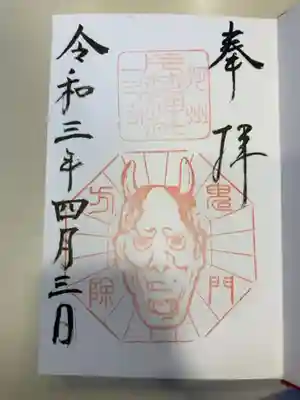 奉拝
令和三年四月三日
河州
鬼門
方除